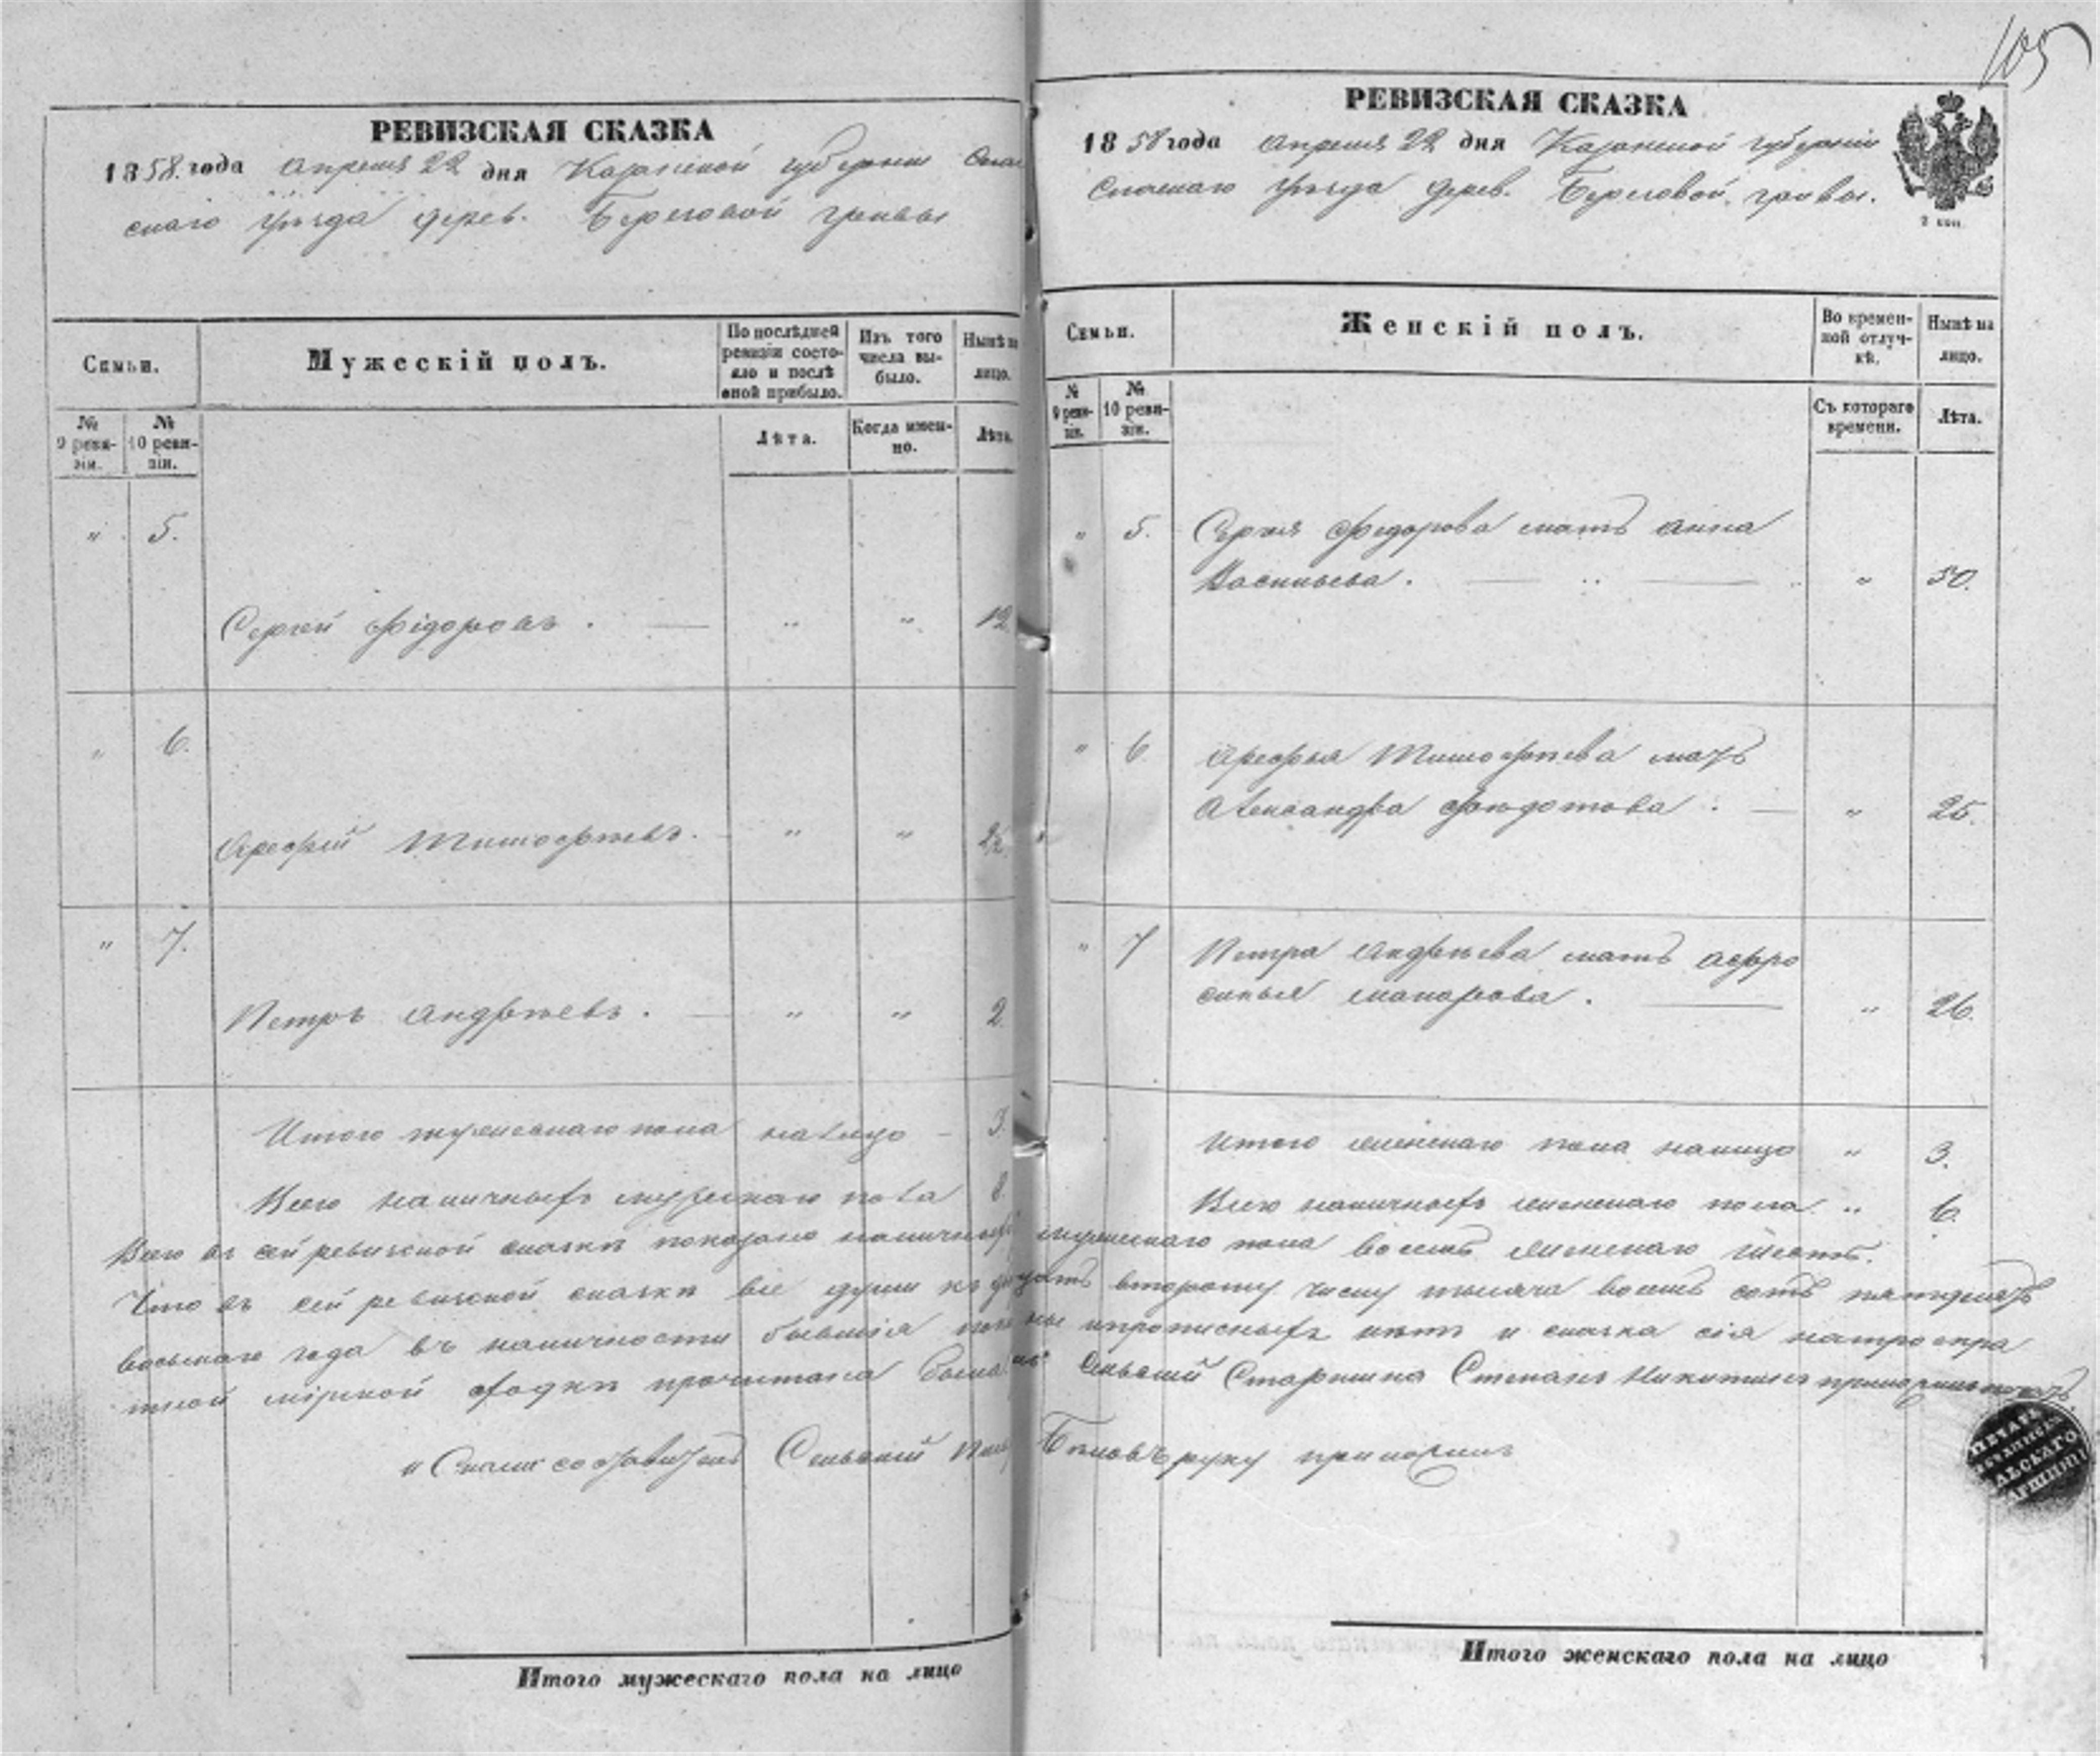 105
РЕВИЗСКАЯ СКАЗКА
1858 года Апреля 22 дня Казанской губернии Спас
скаго уѣзда дерев. Береговой гривы
Семьи.
Мужескій полъ.
По послѣдней ревизіи состояло и послѣ оной прибыло.
Изъ того числа выбыло.
Нынѣ на лицо.
№ 9 ревизіи.
№ 10 ревизіи.
Лѣта.
Когда именно.
Лѣта.
" 5.
Сергей Фёдоровъ . — " " 12.
" 6.
Арефий Тимофѣевъ. — " "
" 7.
Петръ Андрѣевъ . — " " 2.
Итого мужескаго пола на лицо — 3.
Всего наличныхъ мужескаго пола 8.
РЕВИЗСКАЯ СКАЗКА
1858 года Апреля 22 дня Казанской губерніи
Спаскаго уѣзда дерев. Береговой гривы.
2 коп.
Семьи.
Женскій полъ.
Во временной отлучкѣ.
Нынѣ на лицо.
№ 9 ревизіи.
№ 10 ревизіи.
Съ котораго времени.
Лѣта.
" 5. Сергея Федорова мать Анна
Васильева . — " 50.
" 6. Арефья Тимофѣева мать
Александра Федотова . — " 25.
" 7 Петра Андрѣева мать Афро
синья Макарова . — " 26.
Итого женскаго пола налицо " 3.
Всего наличныхъ женскаго пола " 6.
Всего въ сей ревизской сказкѣ показано наличныхъ мужескаго пола восемь женскаго шесть.
Что въ сей ревизской сказки все души къ двадцать второму числу тысяча восемь сотъ пятьдесятъ
восьмаго года въ наличности бывшія и прописныхъ нѣтъ и сказка сія
мірской сходки прочитана была Сельский Старшина Степанъ Никитинъ печать
Сказки составитель Сельский Бѣловъ руку приложилъ
ПЕЧАТЬ
Итого мужескаго пола на лицо
Итого женскаго пола на лицо